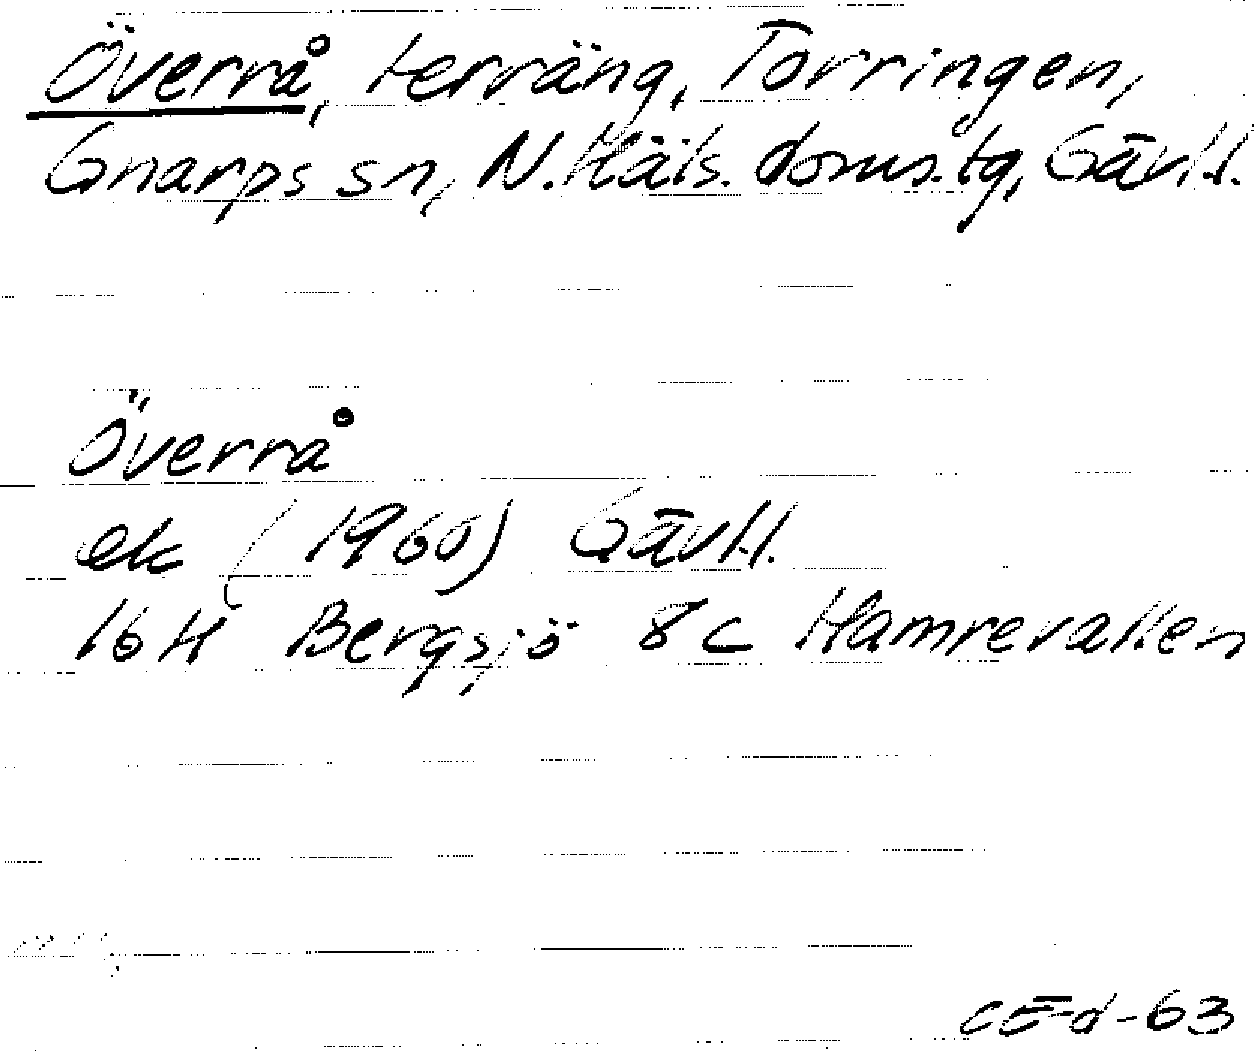 Överrå, terräng, Torringen,
Gnarps sn, N. Häls. doms.tg, Gävl.l.
Överrå
ek (1960) Gävl.l.
16H Bergsjö 8c Hamrevallen
CE-d-63